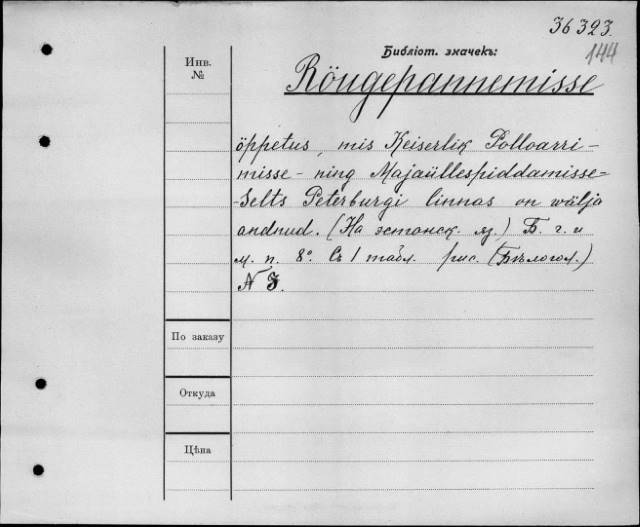 36323.
144
Библіот. значекъ:
Инв.
№
Röugepannemisse
öppetus, mis Keiserlik Polloarri-
misse- ning Majaüllespiddamisse=
-Selts Peterburgi linnas on wälja
andnud. (На эстонск. яз.) Б. г. и
м. п. 8º. Съ 1 табл. рис. (Бѣлогол.)
№ 3.
По заказу
Откуда
Цѣна